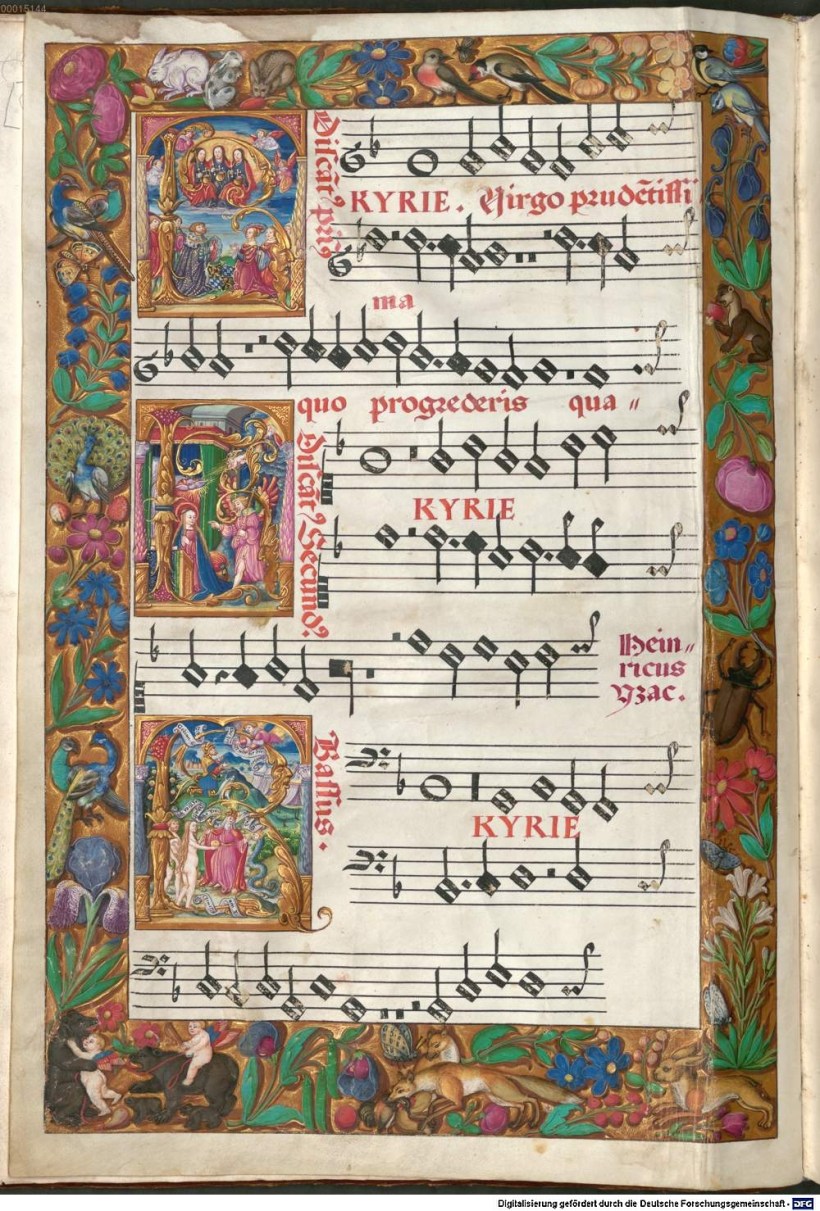 00015144
Discāt9 pri9
KYRIE. Virgo prudētissi
ma
quo progrederis qua„
Discāt9 Secund9
KYRIE
Hein„
ricus
Yzac.
Bassus.
KYRIE
Digitalisierung gefördert durch die Deutsche Forschungsgemeinschaft - DFG